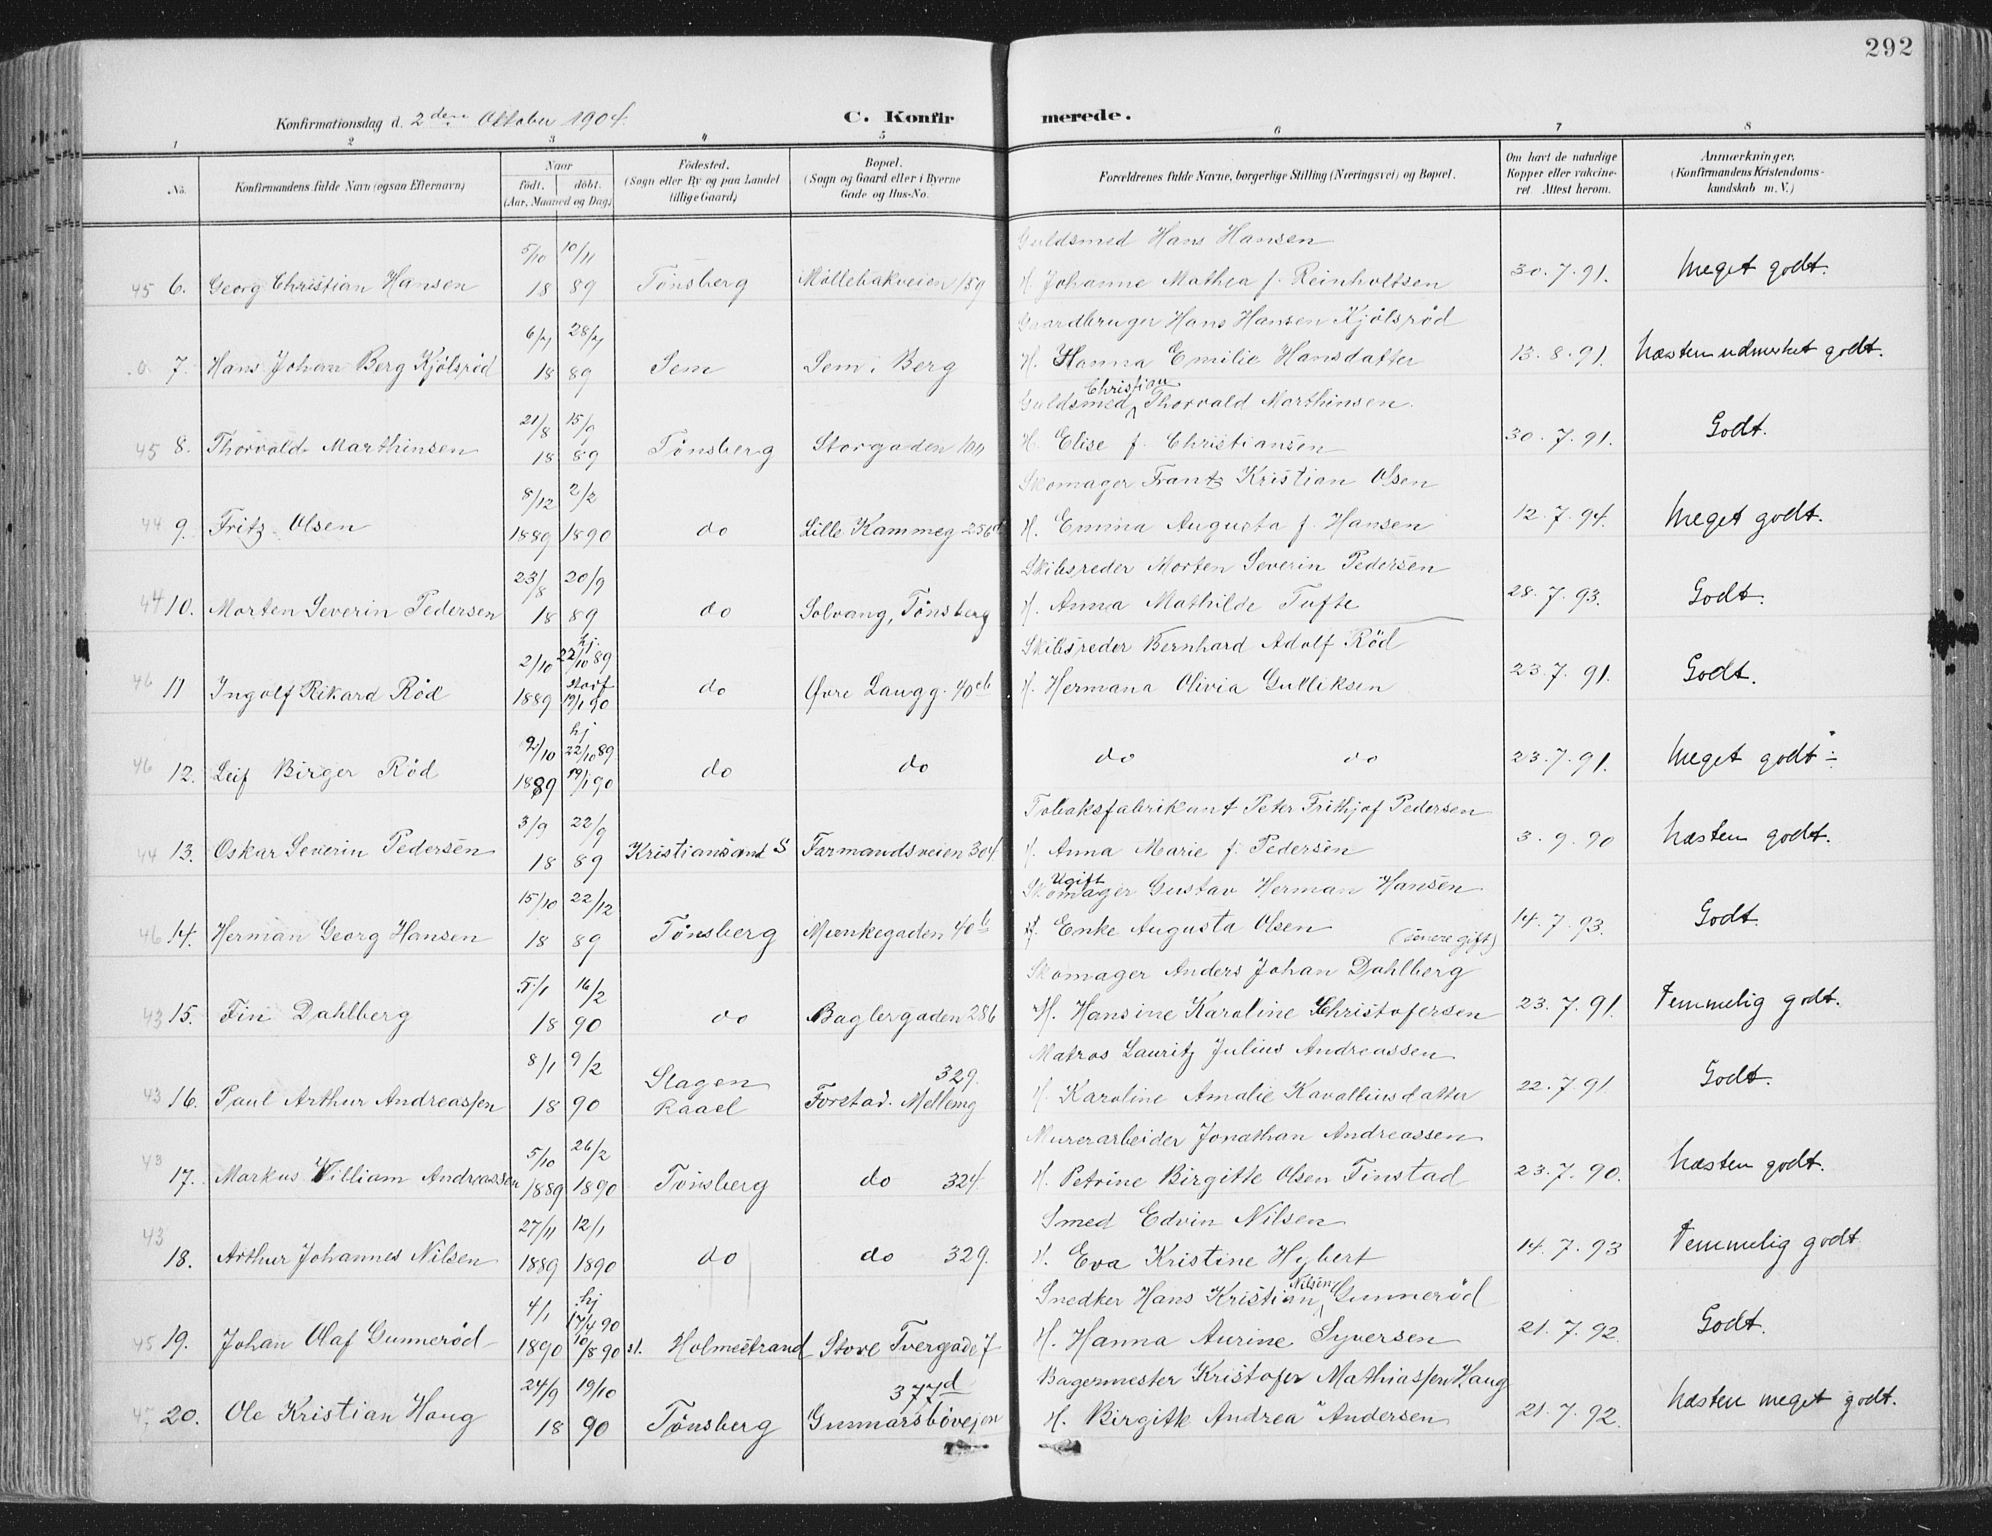 292
Konfirmationsdag d. 2den Oktober 1904.
C. Konfir
merede.
1 2 3 4 5 6 7 8
No.
Konfirmandens fulde Navn (ogsaa Efternavn)
Naar
født. døbt.
(Aar, Maaned og Dag)
Fødested.
(Sogn eller By og paa Landet
tillige Gaard)
Bopæl.
(Sogn og Gaard eller i Byerne
Gade og Hus-No.
Forældrenes fulde Navne, borgerlige Stilling (Næringsvei) og Bopæl.
Om havt de naturlige
Kopper eller vakcine-
ret. Attest herom.
Anmærkninger.
(Konfirmandens Kristendoms-
kundskab m. V.)
5/10 10/11 Guldsmed Hans Hansen
45 6. Georg Christian Hansen 18 89 Tönsberg Möllebakveien 159 H. Johanne Mathea f. Reinholtsen 30.7.91. Meget godt.
6/7 28/7 Gaardbruger Hans Hansen Kjölsröd
7. Hans Johan Berg Kjölsröd 18 89 Sem Sem, Berg H. Hanna Emilie Hansdatter 13.8.91. Næsten udmerket godt.
21/8 15/9 Guldsmed Christian Thorvald Marthinsen
45 8. Thorvald Marthinsen 18 89 Tønsberg Storgaden H. Elise f. Christiansen 30.7.91. Godt.
8/12 2/2 Skomager Frantz Kristian Olsen
44 9. Fritz Olsen 1889 1890 do Lille Kammeg 256 H. Emma Augusta f. Hansen 12.7.94. Meget godt.
23/8 20/9 Skibsreder Morten Severin Pedersen
44 10. Morten Severin Pedersen 18 89 do Solvang, Tønsberg H. Anna Mathilde Tufte 28.7.93. Godt.
2/10 hj 22/10 89 Skibsreder Bernhard Adolf Röd
46 11 Ingolf Rikard Röd 1889 stadf 19/1 90 do Øvre Langg. 40 H. Hermana Olivia Gulliksen 23.7.91. Godt.
2/10 hj 22/10 89
46 12. Leif Birger Röd 1889 19/1 90 do do do do 23.7.91. Meget godt ÷
3/9 22/9 Tobaksfabrikant Peter Frithjof Pedersen
44 13. Oskar Severin Pedersen 18 89 Kristiansand S Farmandsveien 304 H. Anna Marie f. Pedersen 3.9.90 Næsten godt.
15/10 22/12 Ugift Skomager Gustav Herman Hansen
46 14. Herman Georg Hansen 18 89 Tønsberg Munkegaden 40 b Enke Augusta Olsen (senere gift) 14.7.93. Godt.
5/1 16/2 Skomager Anders Johan Dahlberg
43 15. Fin Dahlberg 18 90 do Baglergaden 286 H. Hansine Karoline Christofersen 23.7.91. Temmelig godt.
8/1 9/2 Slagen 329. Matros Lauritz Julius Andreassen
43 16. Paul Arthur Andreassen 18 90 Raael Forstad. Mellemg H. Karoline Amalie Kavalliusdatter 22.7.91. Godt.
5/10 26/2 Murerarbeider Jonathan Andreassen
43 17. Markus William Andreassen 1889 1890 Tönsberg do 324. H. Petrine Birgitte Olsen Finstad 23.7.90. Næsten godt.
27/11 12/1 Smed Edvin Nilsen
43 18. Arthur Johannes Nilsen 1889 1890 do do 329. H. Eva Kristine Hybert 14.7.93 Temmelig godt
4/1 hj 17/4 90 Snedker Hans Kristian Nilsen Gunneröd
45 19. Johan Olaf Gunneröd 1890 10/8 90 st. Holmestrand Store Tvergade 7 H. Hanna Aurine Syversen 21.7.92. Godt.
24/9 19/10 377 d Bagermester Kristofer Mathiassen Haug
20. Ole Kristian Haug 18 90 Tønsberg Gunnarsbövejen H. Birgitte Andrea Andersen 21.7.92. Næsten meget godt.